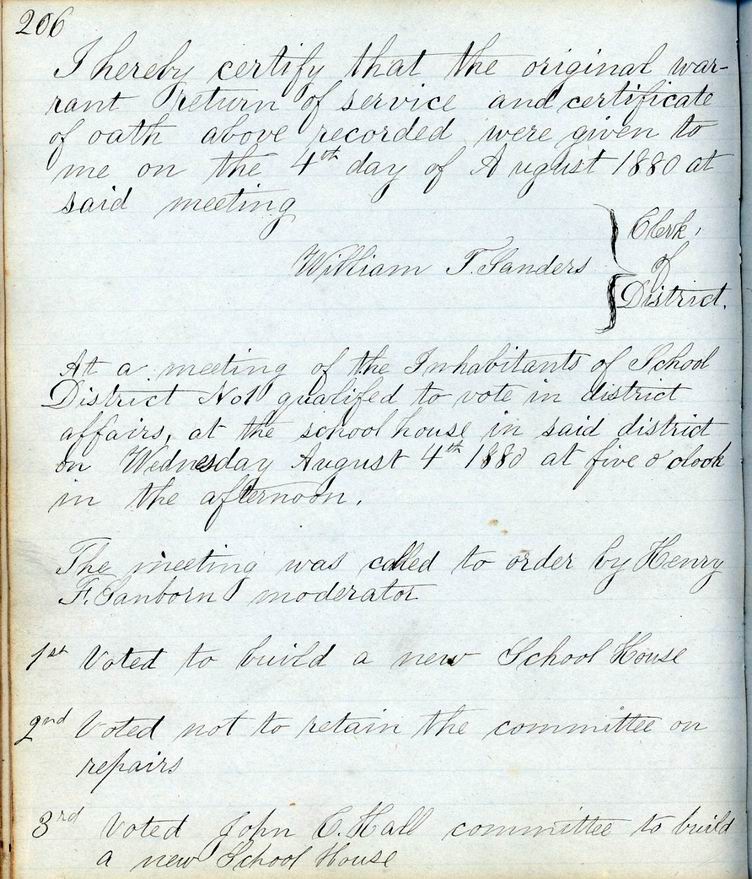 206
I hereby certify that the original war-
rant return of service and certificate
of oath above recorded were given to
me on the 4th day of August 1880 at
said meeting
William T. Sanders } Clerk,
of
District.
At a meeting of the Inhabitants of School
District No1 qualifed to vote in district
affairs, at the school house in said district
on Wednesday August 4th 1880 at five o'clock
in the afternoon.
The meeting was called to order by Henry
F. Sanborn moderator
1st Voted to build a new School House
2nd Voted not to retain the committee on
repairs
3rd Voted John C. Hall committee to build
a new School House